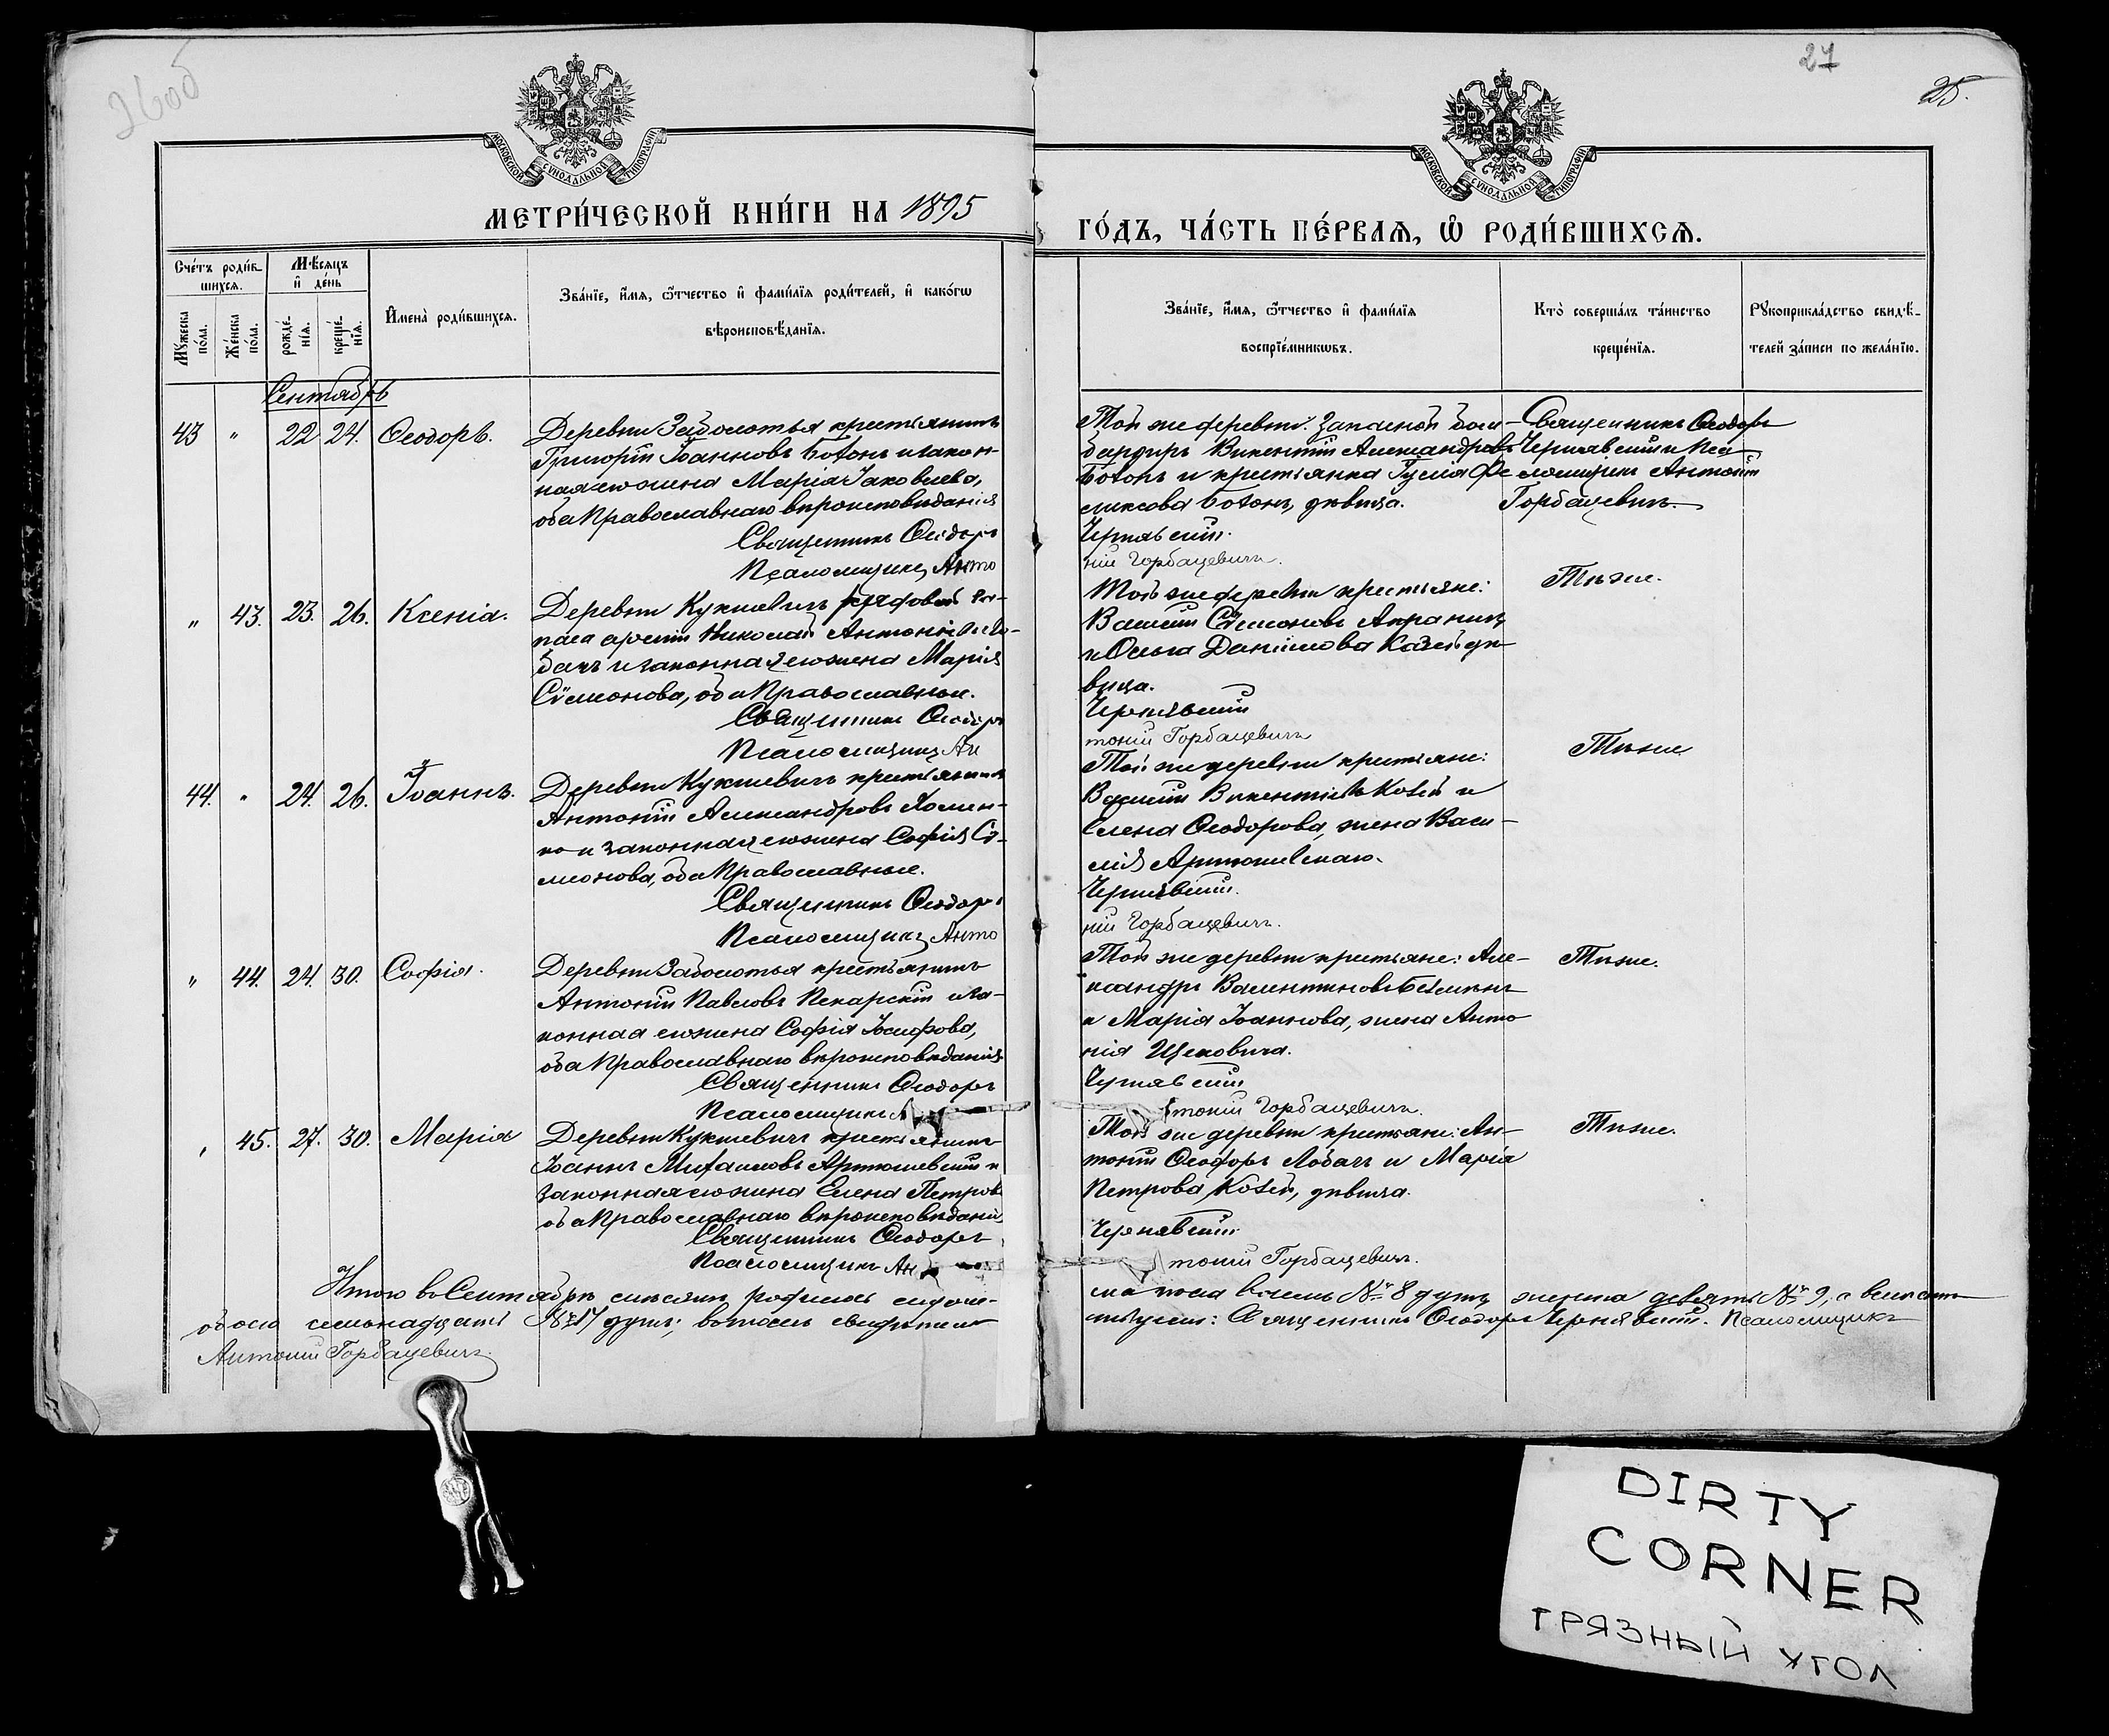 26об
27
25.
МОСКОВСКОЙ СѴНОДАЛЬНОЙ ТИПОГРАФІИ
МОСКОВСКОЙ СѴНОДАЛЬНОЙ ТИПОГРАФІИ
МЕТРИ́ЧЕСКОЙ КНИ́ГИ НА 1895
ГО́ДЪ, ЧА́СТЬ ПЕ́РВАѦ, Ѽ РОДИ́ВШИХСѦ.
Сче́тъ роди́в-
шихсѧ.
Мѣ́сѧцъ
и҆ де́нь
Мꙋ́жеска по́ла.
Же́нска по́ла.
рожде́-
нїѧ.
креще́-
нїѧ.
И҆мена̀ роди́вшихсѧ.
Зва́нїе, и҆́мѧ, ѻ҆́тчество и҆ фами́лїѧ роди́телей, и҆ како́гѡ
вѣроисповѣ́данїѧ.
Зва́нїе, и҆́мѧ, ѻ҆́тчество и҆ фами́лїѧ
воспрїе́мникѡвъ.
Кто̀ соверша́лъ та́инство
креще́нїѧ.
Рꙋкоприкла́дство свидѣ́-
телей за́писи по жела́нїю.
Сентябрь
43 " 22 24. Ѳеодоръ.
Деревни Заболотья крестьянинъ
Григорій Іоанновъ Ботонъ и закон-
ная его жена Марія Іаковлева,
оба Православнаго вѣроисповѣданія
Священникъ Ѳеодоръ
Псаломщикъ Анто
Той же деревни: запасной бом-
бардиръ Викентій Александровъ
Ботонъ и крестьянка Гулія Фе
ликсова Ботонъ, дѣвица.
Чернявскій.
ній Горбацевичъ.
Священникъ Ѳеодоръ
Чернявскій и Пса
ломщикъ Антоній
Горбацевичъ.
" 43. 23. 26. Ксенія.
Деревни Кукшевичъ рядовой за-
паса арміи Николай Антоніевъ Ло-
бачъ и законная его жена Марія
Сѵмеонова, оба Православные.
Священникъ Ѳеодоръ
Псаломщикъ Ан
Той же деревни крестьяне:
Василій Сѵмеоновъ
и Ольга Даніилова дѣ-
вица.
Чернявскій
тоній Горбацевичъ
Тѣже.
44. " 24. 26. Іоаннъ.
Деревни Кукшевичъ крестьянинъ
Антоній Александровъ Хомен-
ко и законная его жена Софія Сѵ-
меонова, оба Православные.
Священникъ Ѳеодоръ
Псаломщикъ Анто
Той же деревни крестьяне:
Василій Викентіевъ Козей и
Елена Ѳеодорова, жена Васи-
лія Артюшевскаго.
Чернявскій.
ній Горбацевичъ.
Тѣже
" 44. 24. 30. Софія.
Деревни Заболотья крестьянинъ
Антоній Павловъ Пекарскій и за-
конная его жена Софія Іосифова,
оба Православнаго вѣроисповѣданія
Священникъ Ѳеодоръ
Псаломщикъ А
Той же деревни крестьяне: Але-
ксандръ Валентиновъ
и Марія Іоаннова, жена Анто
нія Щековича.
Чернявскій
тоній Горбацевичъ.
Тѣже.
" 45. 27. 30. Марія
Деревни Кукшевичъ крестьянинъ
Іоаннъ Михаиловъ Артюшевскій и
законная его жена Елена Петров
оба Православнаго вѣроисповѣданія
Священникъ Ѳеодоръ
Псаломщикъ Ан
Той же деревни крестьяне: Ан-
тоній Ѳеодоръ Лобачъ и Марія
Петрова Козей, дѣвица.
Чернявскій
тоній Горбацевичъ.
Тѣже.
Итого въ Сентябрѣ мѣсяцѣ родилось мужес-
ка пола восемь № 8 душъ, женска девять № 9, а всего
обоего семнадцать № 17 душъ; въ томъ свидѣтель
ствуемъ: Священникъ Ѳеодоръ Чернявскій. Псаломщикъ
Антоній Горбацевичъ.
DIRTY
CORNER
ГРЯЗНЫЙ УГОЛ